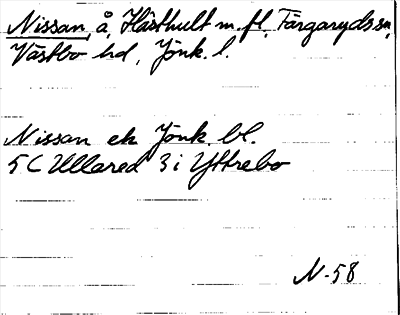 Nissan, å, Hästhult m.fl. Färgaryds sn,
Västbo hd, Jönk. l.
Nissan ek Jönk. bl.
5 C Ullared 3 i Yttrebo
N-58